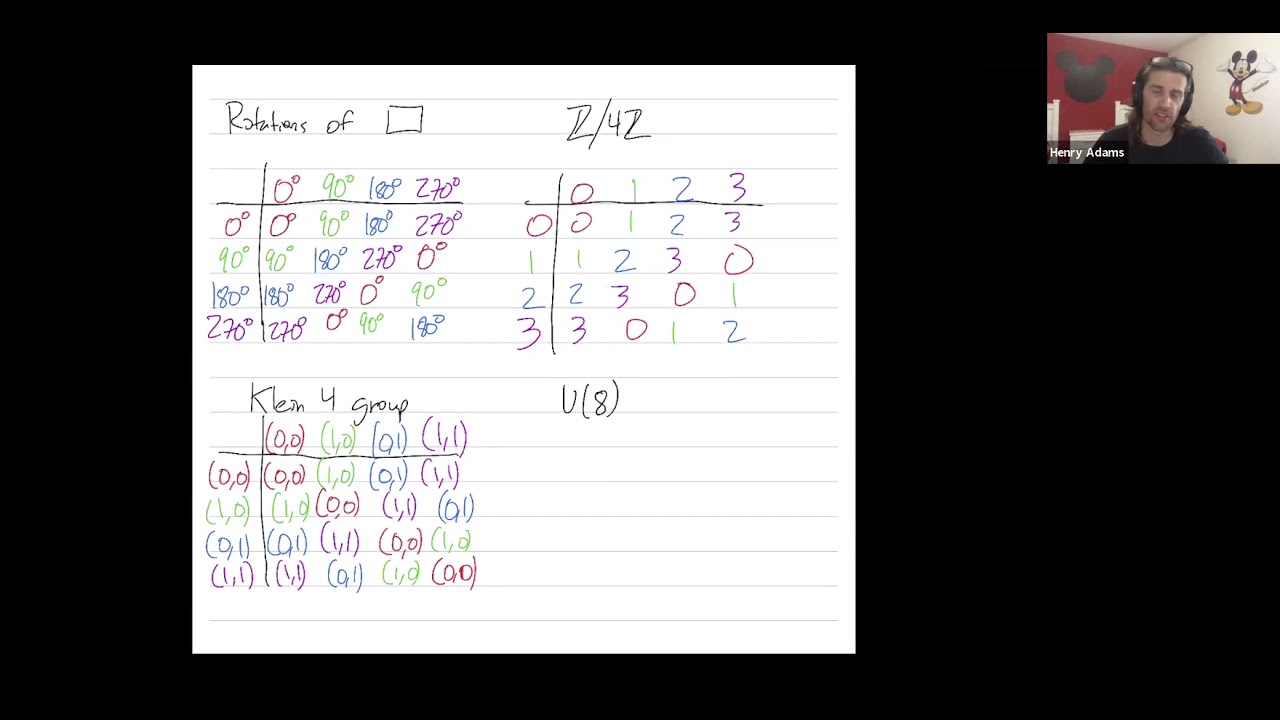 Rotations of □ ℤ/4ℤ
0° 90° 180° 270° 0 1 2 3
0° 0° 90° 180° 270° 0 0 1 2 3
90° 90° 180° 270° 0° 1 1 2 3 0
180° 180° 270° 0° 90° 2 2 3 0 1
270° 270° 0° 90° 180° 3 3 0 1 2
Klein 4 group U(8)
(0,0) (1,0) (0,1) (1,1)
(0,0) (0,0) (1,0) (0,1) (1,1)
(1,0) (1,0) (0,0) (1,1) (0,1)
(0,1) (0,1) (1,1) (0,0) (1,0)
(1,1) (1,1) (0,1) (1,0) (0,0)
Henry Adams